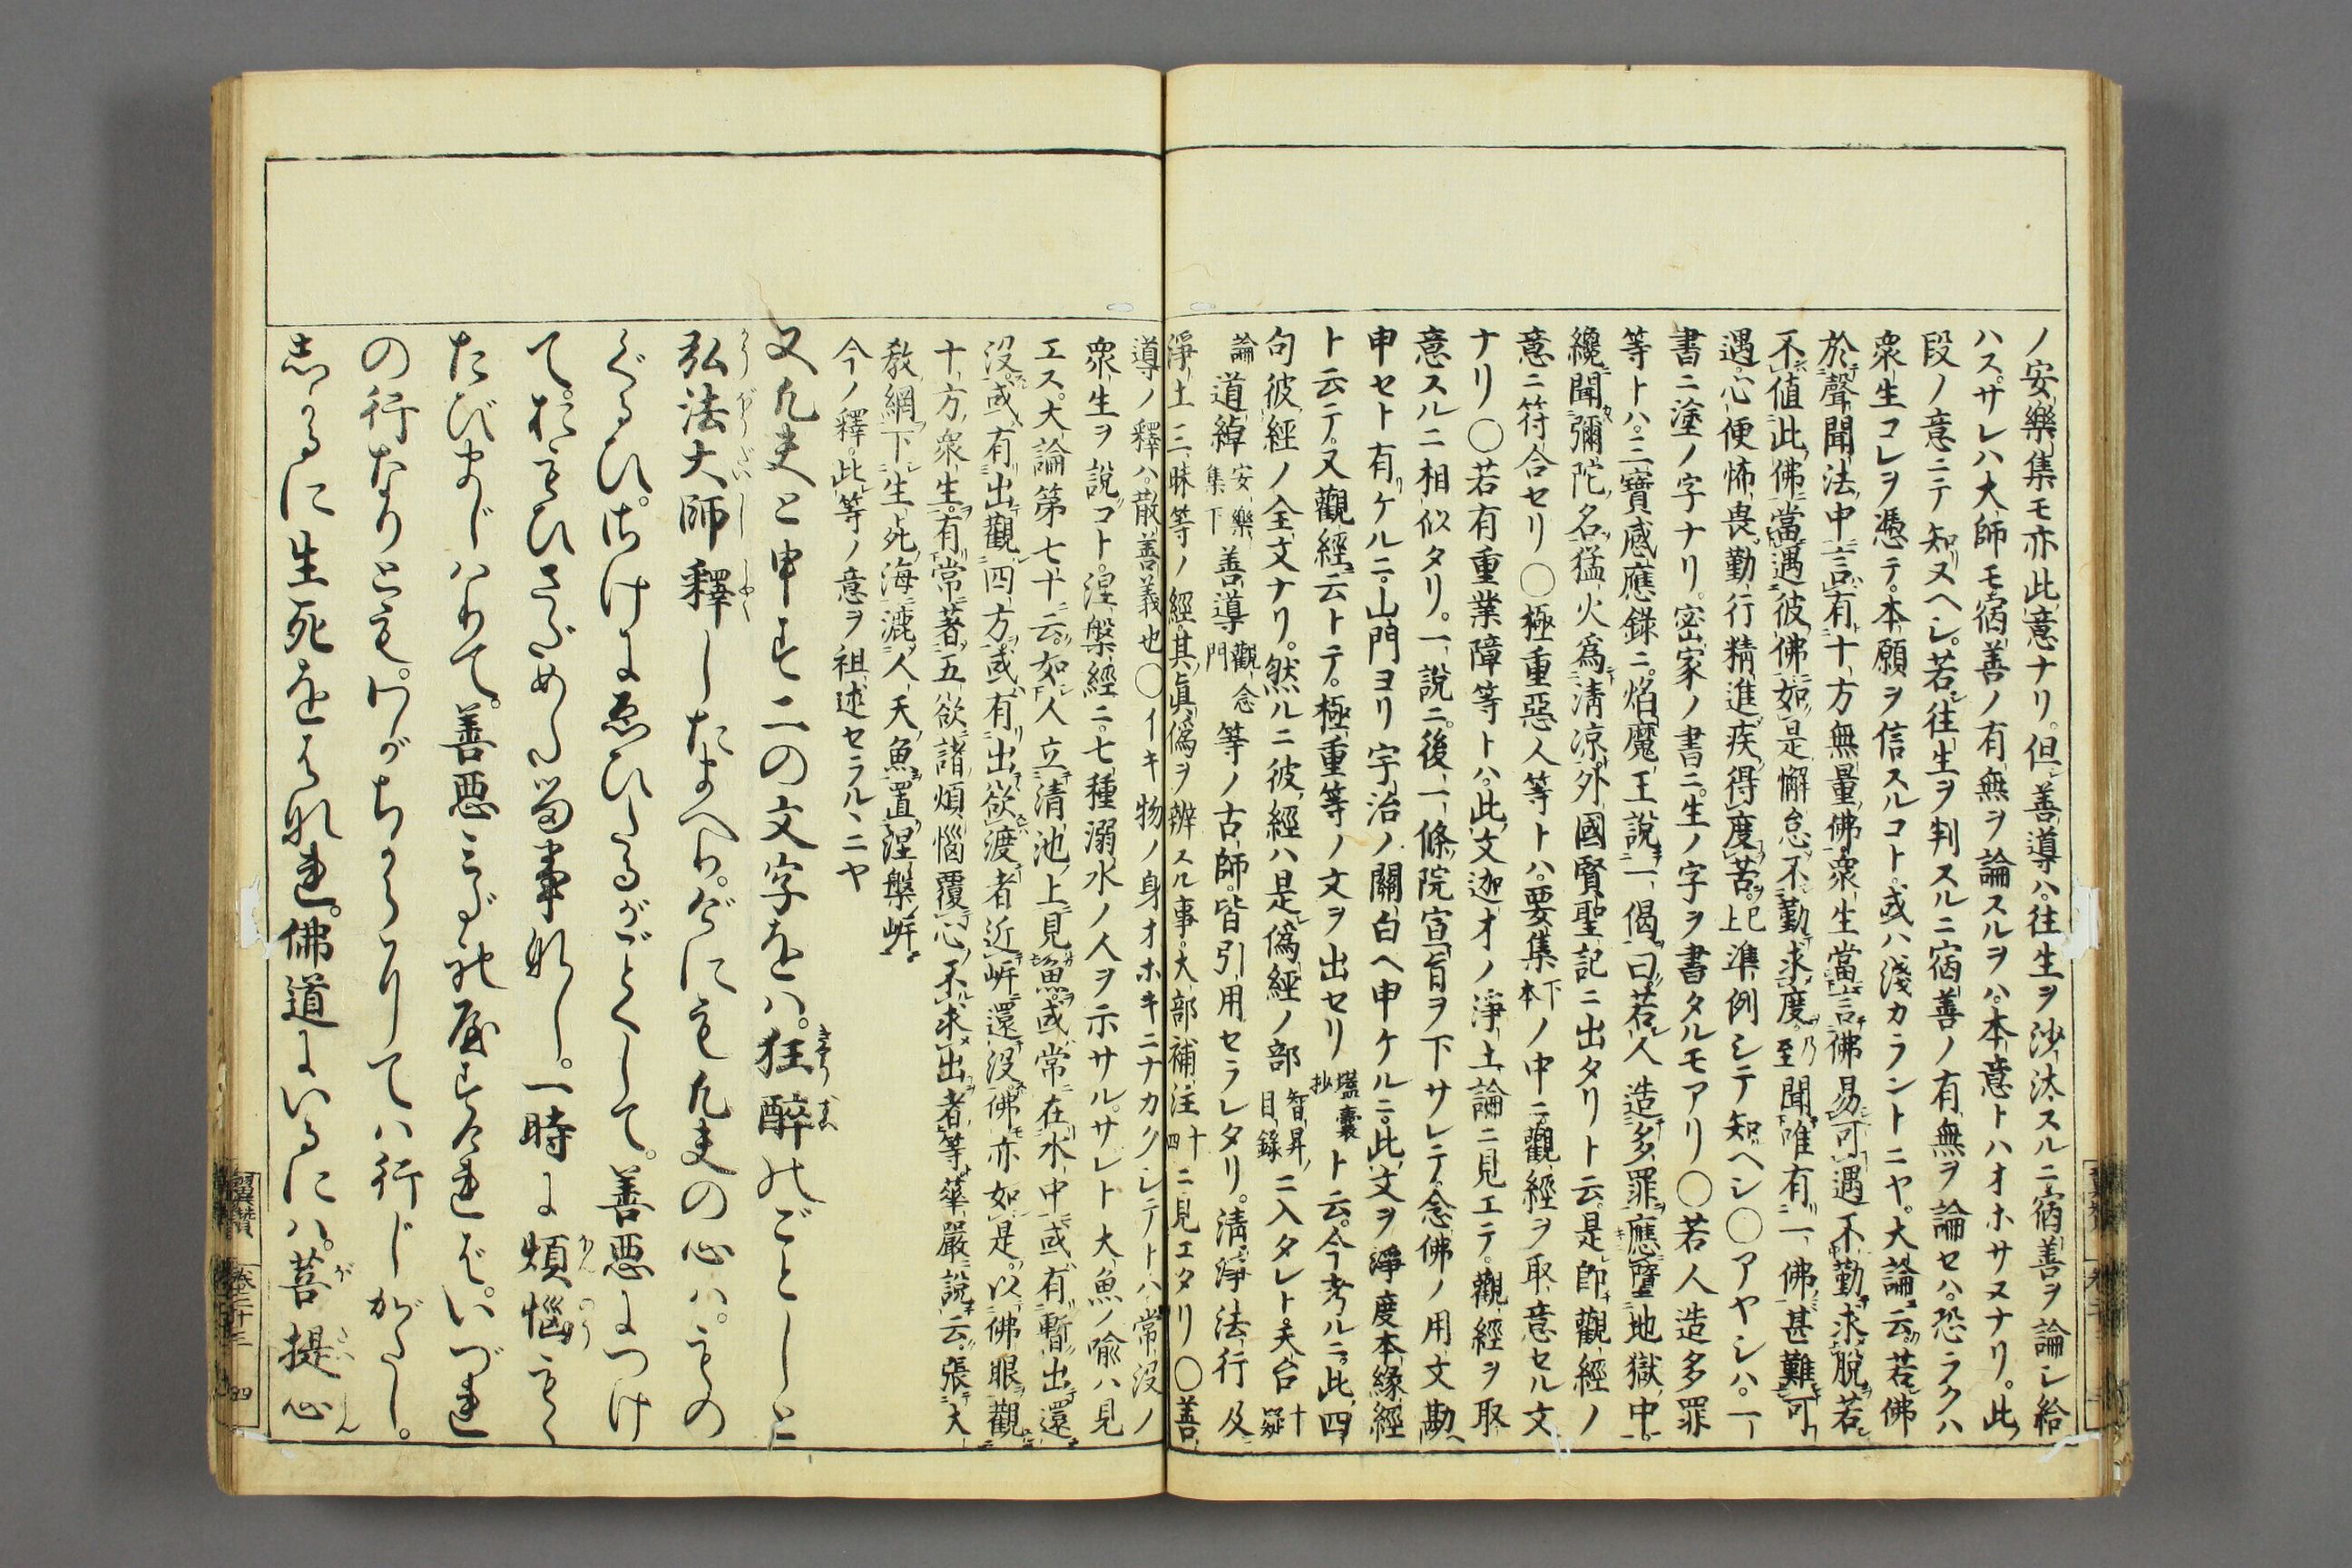 ノ安樂集モ亦此意ナリ。但善導ハ。往生ヲ沙汰スルニ宿善ヲ論シ給
ハス。サレハ大師モ宿善ノ有無ヲ論スルヲハ。本意トハオホサヌナリ。此
段ノ意ニテ知ヌヘシ。若往生ヲ判スルニ宿善ノ有無ヲ論セハ。恐ラクハ
衆生コレヲ憑テ。本願ヲ信スルコト。或ハ淺カラントニヤ。大論云。若佛
於聲聞法中言有十方無量佛衆生當言佛易可遇不勤求脫若
不値此佛當遇彼佛如是懈怠不勤求度乃至聞唯有一佛甚難可
遇心便怖畏勤行精進疾得度苦已上準例シテ知ヘシ〇アヤシハ。一
書ニ塗ノ字ナリ。密家ノ書ニ。生ノ字ヲ書タルモアリ〇若人造多罪
等トハ。三寶感應錄ニ。焰魔王說一偈曰。若人造多罪應墮地獄中。
纔聞彌陀名猛火爲淸凉外國賢聖記ニ出タリト云。是卽觀經ノ
意ニ符合セリ〇極重惡人等トハ。要集下本ノ中ニ。觀經ヲ取意セル文
ナリ〇若有重業障等トハ。此文迦才ノ淨土論ニ見エテ。觀經ヲ取
意スルニ相似タリ。一說ニ。後一條院宣旨ヲ下サレテ。念佛ノ用文勘ヘ
申セト有ケルニ。山門ヨリ宇治ノ關白ヘ申ケルニ。此文ヲ淨度本緣經
ト云テ。又觀經云トテ。極重等ノ文ヲ出セリ壒囊抄ト云。今考ルニ。此四
句彼經ノ全文ナリ。然ルニ彼經ハ是僞經ノ部智昇目錄ニ入タレト。天台十疑
論道綽安樂集下善導觀念門等ノ古師。皆引用セラレタリ。淸淨法行及
淨土三昧等ノ經。其眞僞ヲ辨スル事。大部補注十四ニ見エタリ〇善
導ノ釋ハ。散善義也〇イキ物ノ身オホキニナカクシテトハ。常沒ノ
衆生ヲ說コト。涅槃經ニ。七種溺水ノ人ヲ示サル。サレト大魚ノ喩ハ見
エス。大論第七十ニ云。如人立淸池上見魚。或常在水中或有暫出還
沒。或有出觀四方。或有出欲渡者近岸還沒佛亦如是。以佛眼觀
十方衆生。有常著五欲諸煩惱覆心不求出者等。華嚴說云。張大
敎網下生死海漉人天魚置涅槃岸。
今ノ釋。此等ノ意ヲ祖述セラルヽニヤ
又凡夫と申す二の文字をハ。狂醉のごとしと
弘法大師釋したまへり。げにも凡夫の心ハ。もの
ぐるひ。さけによゑひたるがごとくして。善惡につけ
て。おもひさだめたる事なし。一時に煩惱もゝ
たびまじハりて。善惡みだれやすければ。いづれ
の行なりとも。わがちからにてハ行じがたし。
しかるに生死をはなれ。佛道にいるにハ。菩提心
翼賛 卷二十三 四